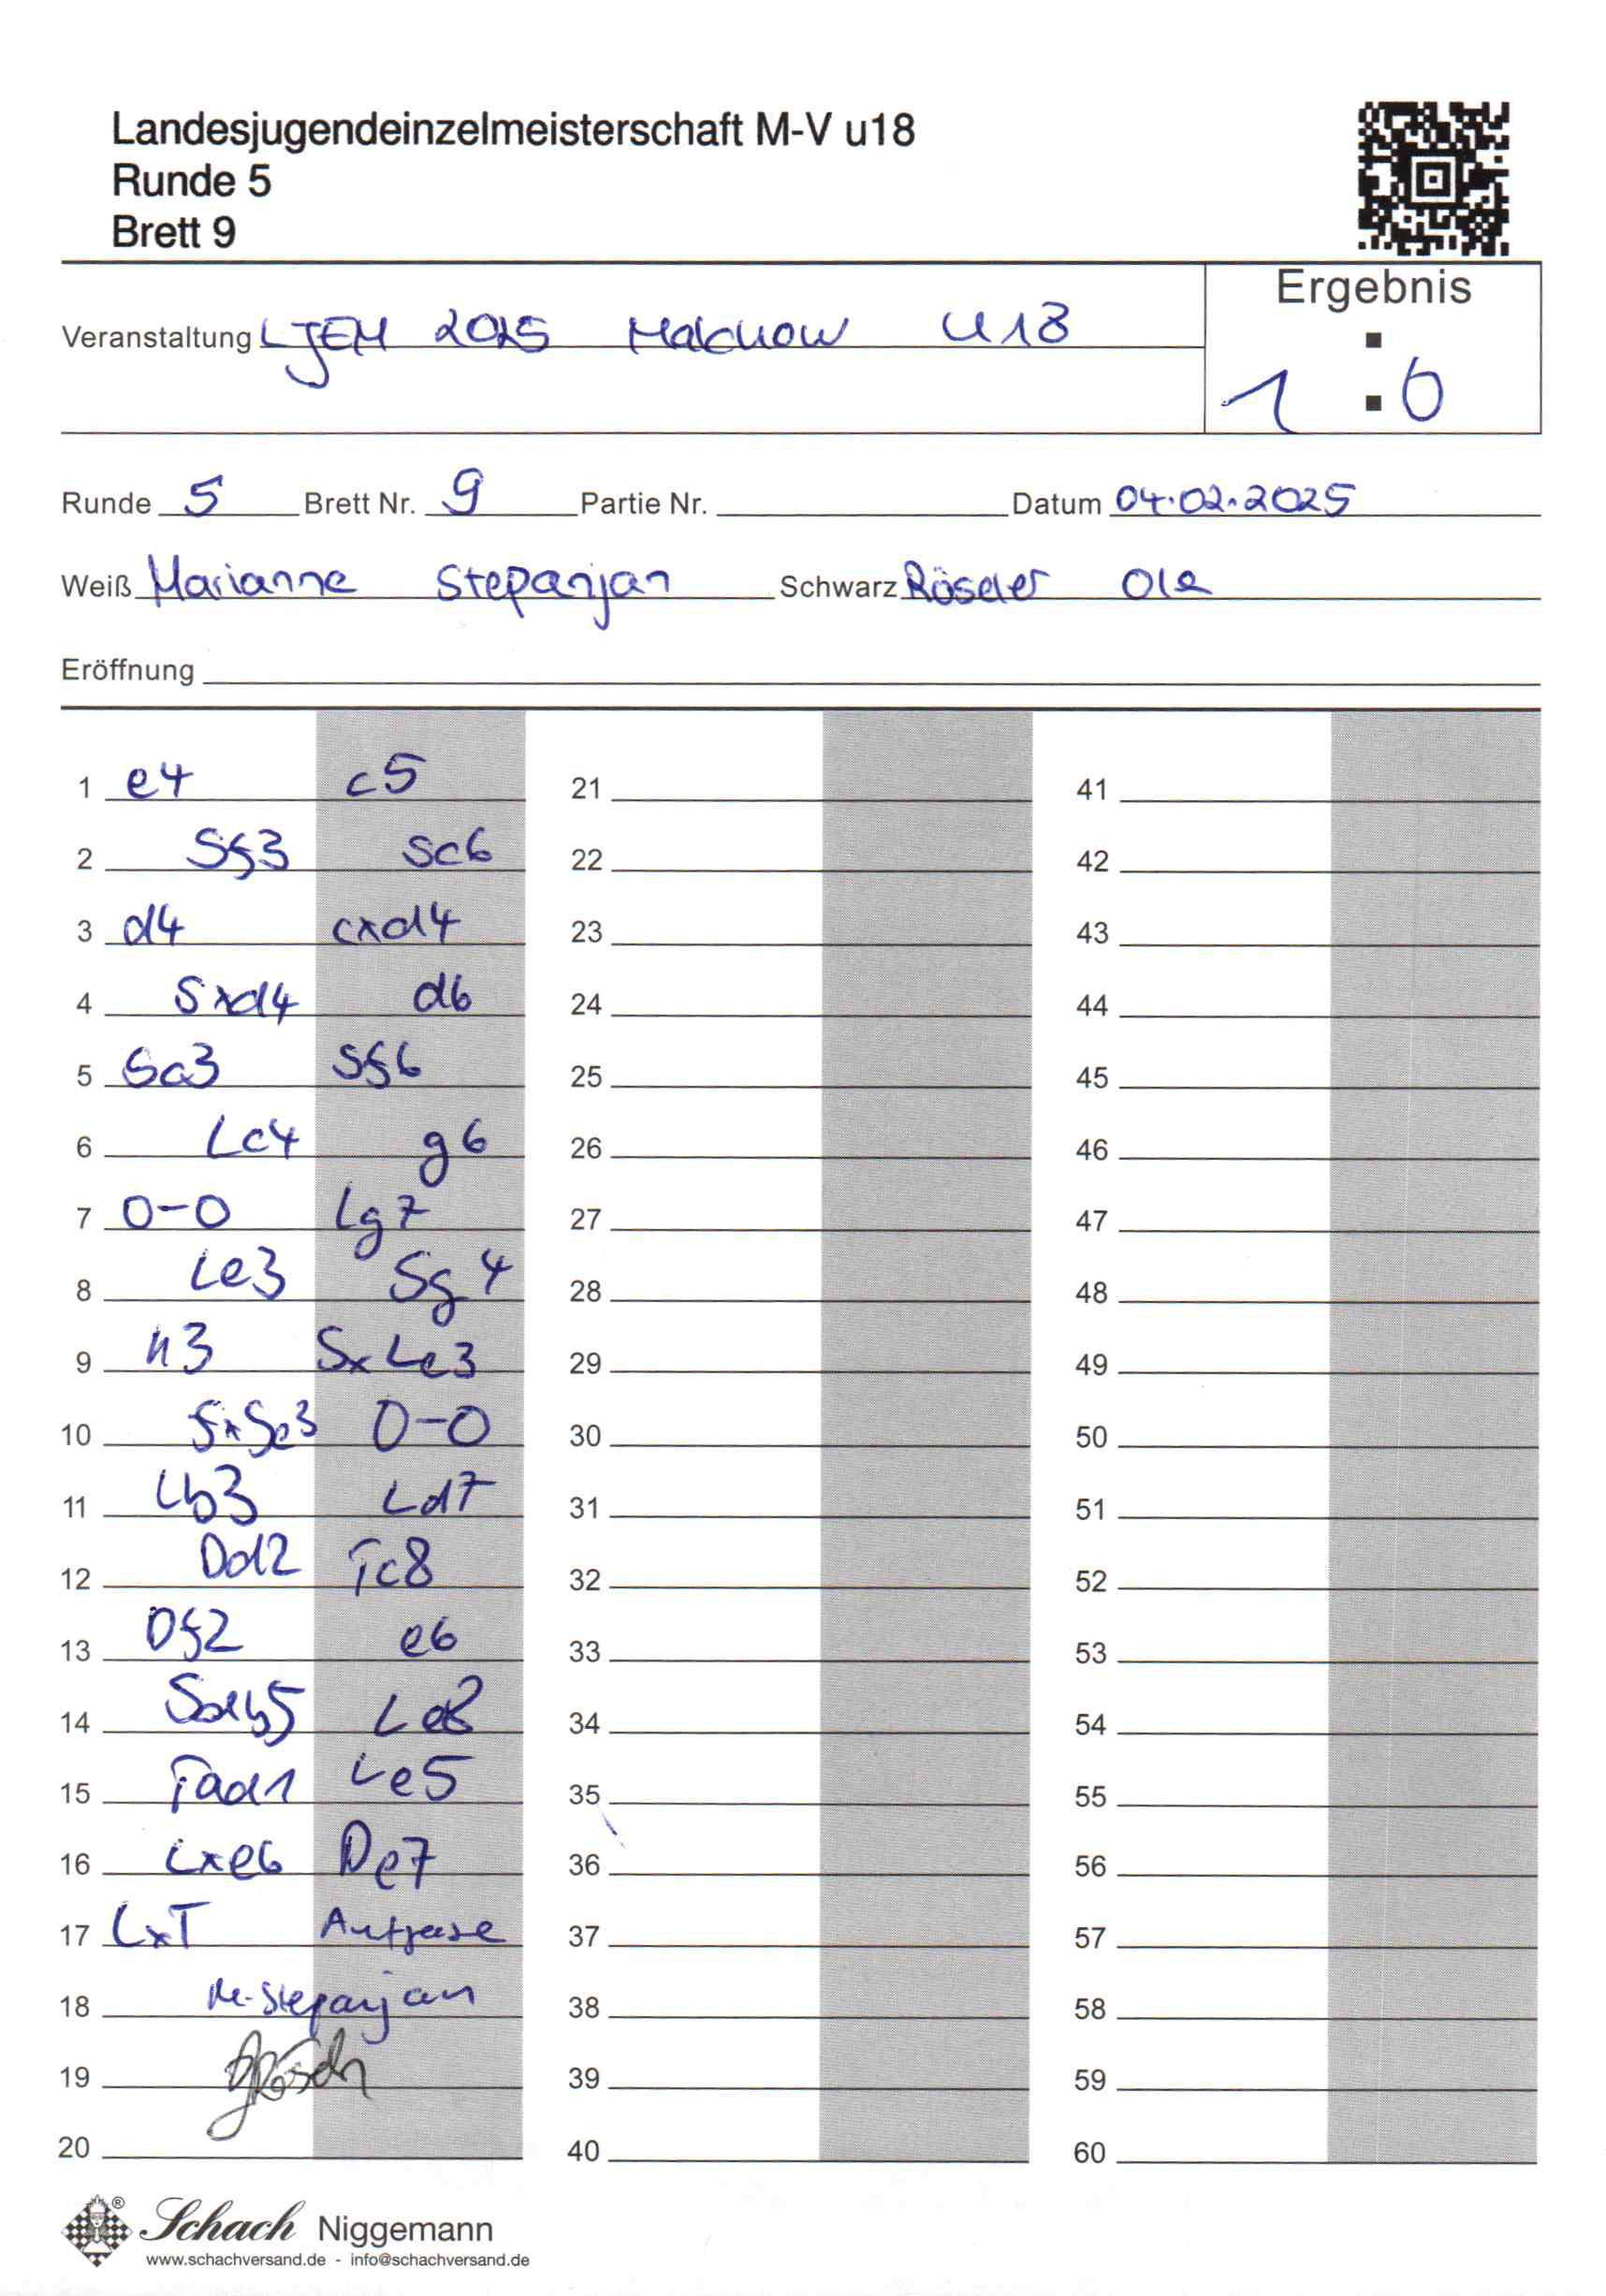 Landesjugendeinzelmeisterschaft M-V u18
Runde 5
Brett 9
Ergebnis
Veranstaltung LJEM 2025 Malchow U18
1 : 0
Runde 5 Brett Nr. 9 Partie Nr. Datum 04.02.2025
Weiß Marianne Stepanjan Schwarz Röseler Ole
Eröffnung
1 e4 c5 21 41
2 Sf3 Sc6 22 42
3 d4 cxd4 23 43
4 Sxd4 d6 24 44
5 Sc3 Sf6 25 45
6 Lc4 g6 26 46
7 0-0 Lg7 27 47
8 Le3 Sg4 28 48
9 h3 SxLe3 29 49
10 fxSe3 0-0 30 50
11 Lb3 Ld7 31 51
12 Dd2 Tc8 32 52
13 Df2 e6 33 53
14 Sdb5 Le8 34 54
15 Tad1 Le5 35 55
16 Lxe6 De7 36 56
17 LxT Aufgabe 37 57
18 M. Stepanjan 38 58
19 39 59
20 40 60
Schach Niggemann
www.schachversand.de - info@schachversand.de